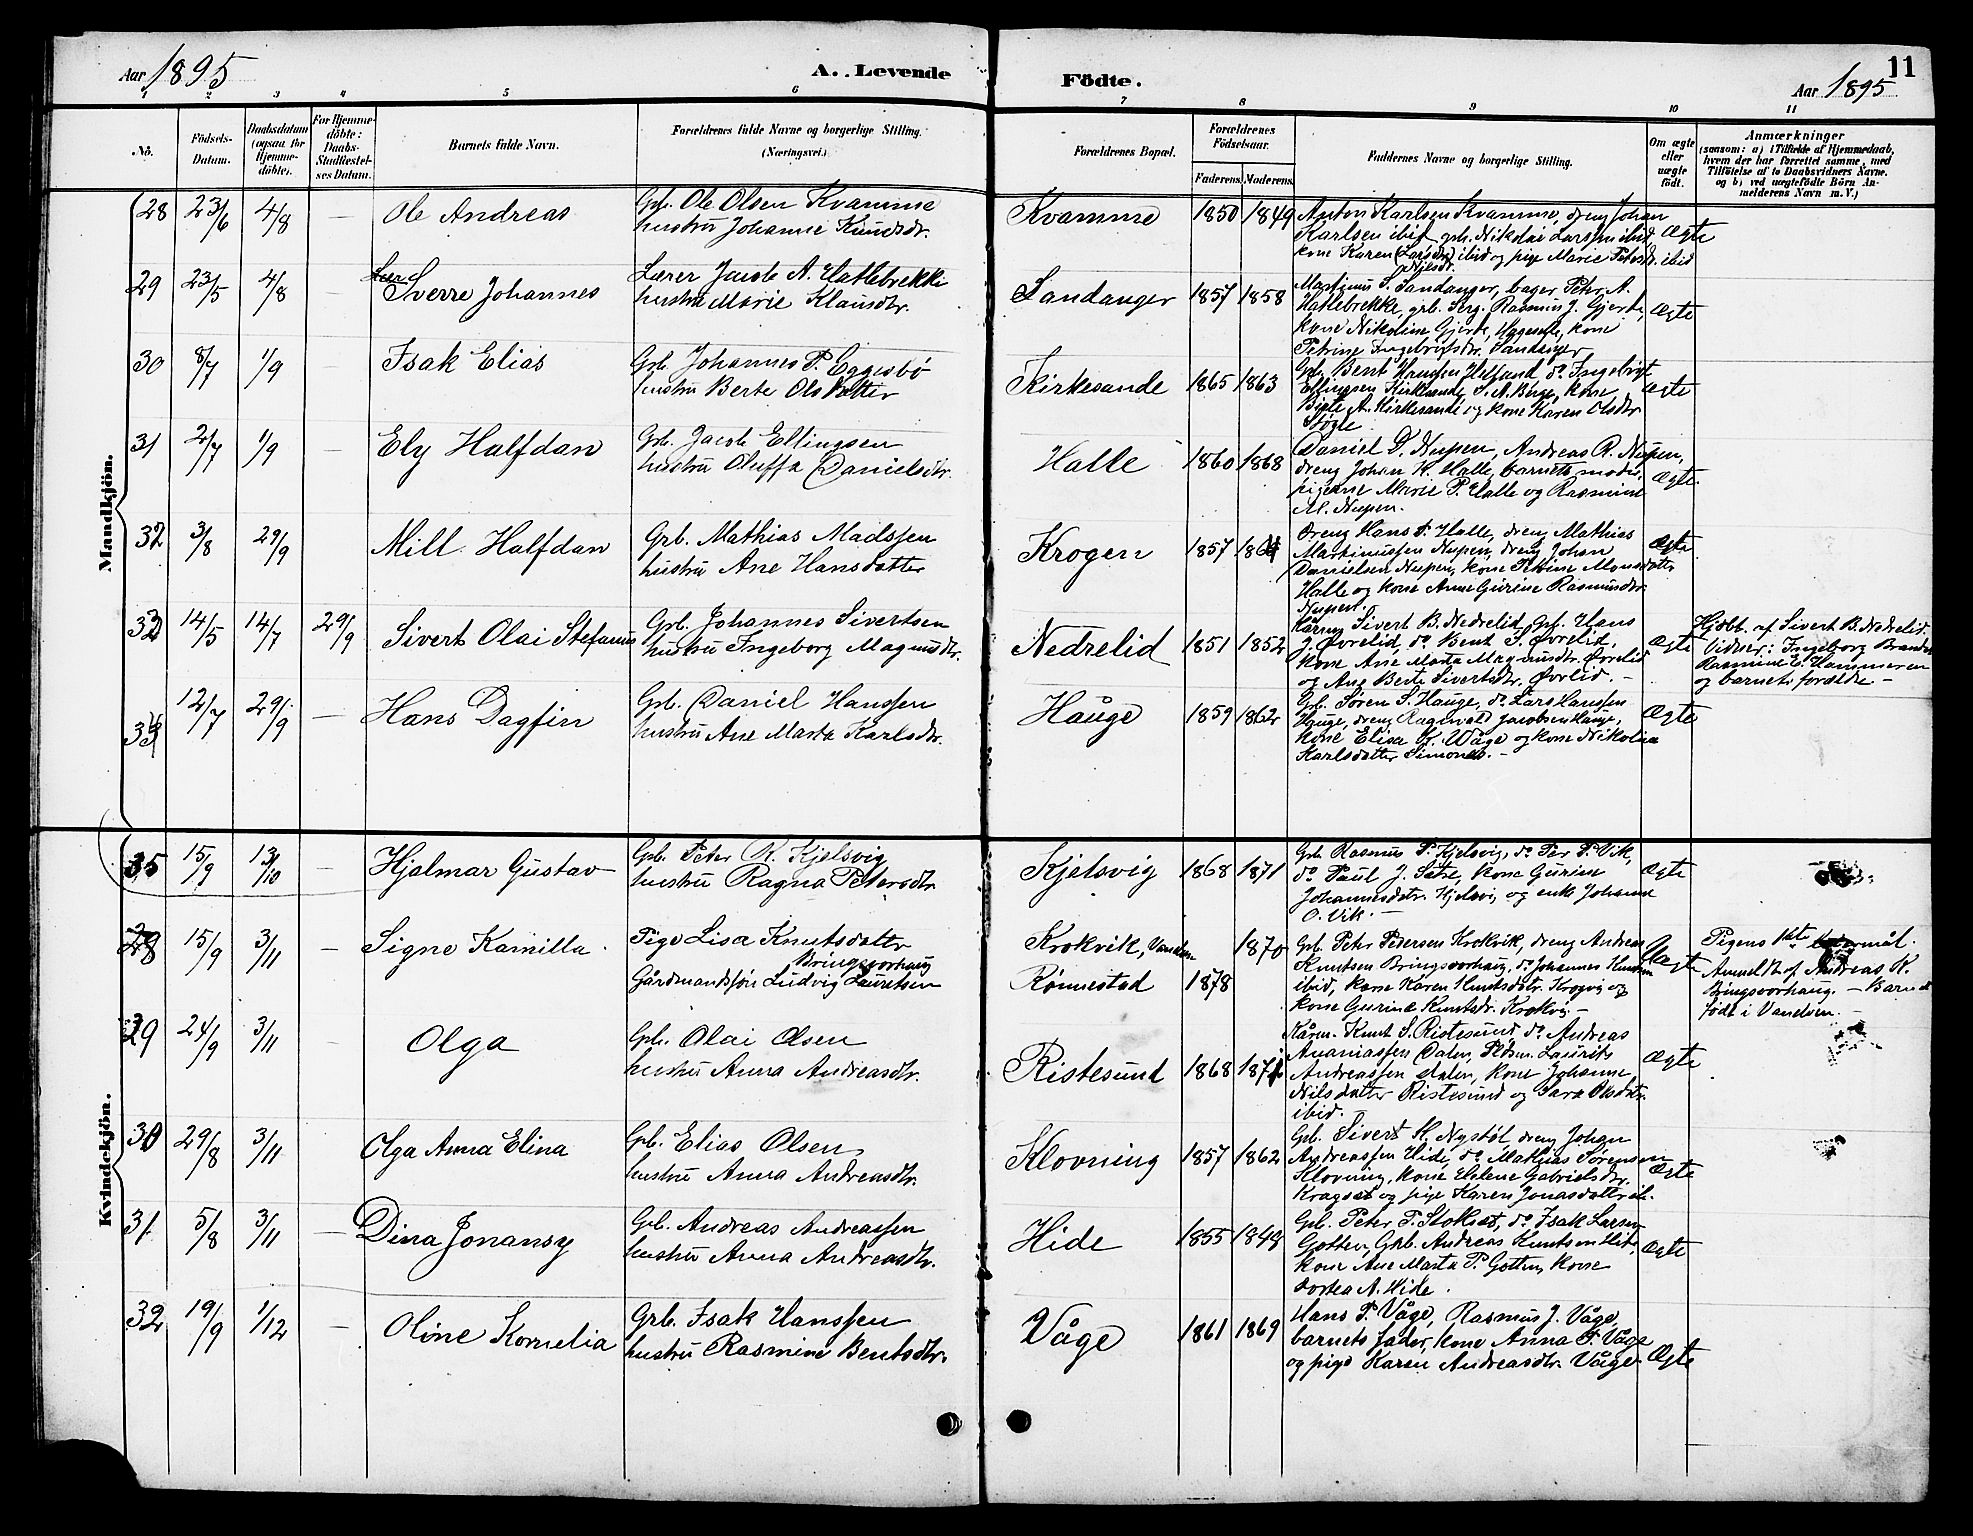 Aar 1895
A. Levende
Födte.
Aar 1895
11
1 2 3 4 5 6 7 8 9 10 11
No.
Födsels-
Datum.
Daabsdatum
(ogsaa for
Hjemme-
döbte).
For Hjemme-
döbte:
Daabs-
Stadfæstel-
ses Datum.
Barnets fulde Navn.
Forældrenes fulde Navne og borgerlige Stilling.
(Næringsvei.)
Forældrenes Bopæl.
Forældrenes
Födselsaar.
Faderens. Moderens.
Faddernes Navne og borgerlige Stilling.
Om ægte
eller
uægte
födt.
Anmærkninger
(saasom: a) i Tilfælde af Hjemmedaab,
hvem der har forrettet samme, med
Tilföielse af to Daabsvidners Navne.
og b) ved uægtefödte Börn An-
melderens Navn m. V.)
Mandkjön.
28 23/6 4/8 — Ole Andreas
Grb. Ole Olsen Kvamme
hustru Johanne Knudsdr.
Kvamme 1850 1849
Anton Karlsen Kvamme, dreng Johan
Karlsen ibid, grb. Nikolai Larssen ibid,
kone Karen ibid og pige Marie Petersdr. ibid
Ægte
29 23/5 4/8 — Sverre Johannes
Lærer Jacob A. Hatlebrekke
hustru Marie Klausdtr.
Sandanger 1857 1858
Martinus S. Sandanger, bager Peter A.
Hatlebrekke, grb. Serg. Rasmus J. Gjerde,
kone Nikoline Gjerde, kone
Petrine Ingebrigtsdtr. Sandanger
Ægte
30 8/7 1/9 — Isak Elias
Grb. Johannes P. Eggesbö
hustru Berte Olsdotter
Kirkesande 1865 1863
Grb. Bent do Ingebrigt
Ellingsen Kirkesande, S. A. Berge, kone
A. Kirkesande og kone Karen Olsdtr.
Ægte
31 2/7 1/9 Ely Halfdan
Grb. Jacob Ellingsen
hustru Oluffa Danielsdtr.
Halle 1860 1868
Daniel D. Nupen, Andreas R. Nupen,
dreng Johan H. Halle, barnets moder,
pigerne Marie P. Halle og Rasmine
M. Nupen.
Ægte.
32 3/8 29/9 Mill Halfdan
Grb. Mathias Madssen
hustru Ane Hansdatter
Krogen 1857 1864
Dreng Hans P. Halle, dreng Mathias
Martinussen Nupen, dreng Johan
Danielsen Nupen, kone Petrine Monsdatter
Halle og kone Anne Gurine Rasmusdtr.
Nupen.
Ægte
33 14/5 14/7 29/9 Sivert Olai Stefanus
Grb. Johannes Sivertsen
hustru Ingeborg Magnusdtr.
Nedrelid 1851 1852
Kårm. Sivert B. Nedrelid, Grb. Hans
J. Övrelid, do Bent S. Övrelid,
kone Ane Marta Magnusdtr. Övrelid
og Ane Berte Sivertsdtr. Övrelid. —
Ægte
Hjdbt. af Sivert B. Nedrelid.
Vidner: Ingeborg
Rasmine E. Hammeren
og barnets forældre —
34 12/7 29/9 — Hans Dagfin
Grb. Daniel Hanssen
hustru Ane Marta Karlsdtr.
Hauge 1859 1862
Grb. Sören S. Hauge, do Lars Hanssen
Hauge, dreng Ragnvald Jacobsen Hauge,
kone Elisa K. Våge og kone Nikolina
Karlsdatter Simones. —
Ægte
35 15/9 13/10 Hjalmar Gustav
Grb. Peter R. Kjelsvig
hustru Ragna Petersdtr.
Kjelsvig 1868 1871
Grb. Rasmus P. Kjelsvig, do Per P. Vik,
do Paul J. Sætre, kone Gurine
Johannesdatr. Kjelsvig og enke Johanne
O. Vik. —
Ægte
Kvindekjön.
28 15/9 3/11 — Signe Kamilla
Pige Lisa Knutsdatter
Bringsvorhaug
Gårdmandssön Ludvig Lauritsen
Krokvik, Vanelven 1870
Rönnestad 1878
Grb. Peter Pedersen Krokvik, dreng Andreas
Knutsen Bringsvorhaug, do Johannes Knutsen
ibid, kone Karen Knutsdatr. Krogvig og
kone Gurine Knutsdr. Krokvig —
Uægte
Pigens 1ste leiermål.
Anmeldt af Andreas K.
Bringsvorhaug. — Barnet
födt i Vanelven. —
29 24/9 3/11 Olga
Grb. Olai Olsen
hustru Anna Andreasdtr.
Ristesund 1868 1871
Kårm. Knut S. Ristesund, do Andreas
Ananiassen Dalen, Laurits
Andreassen Dalen, kone Johanne
Nilsdatter Ristesund og Sara Olsdatr.
ibid.
Ægte
30 29/8 3/11 Olga Anna Elina
Grb. Elias Olsen
hustru Anna Andreasdtr.
Klovning 1857 1862
Grb. Sivert H. Nystöl, dreng Johan
Andreassen Hide, do Mathias Sörensen
Klovning, kone Helene Gabrielsdtr.
Kragset og pige Karen Jonasdatter ib.
Ægte
31 5/8 3/11 — Dina Jonansy
Grb. Andreas Andreassen
hustru Anna Andreasdtr.
Hide 1855 1849
Grb. Peter P. Stokset, do Isak Larsen
Gotten, Grb. Andreas Knutsen Hide,
kone Ane Marta P. Gotten, kone
Dortea A. Hide.
Ægte
32 19/9 1/12 — Oline Kornelia
Grb. Isak Hanssen
hustru Rasmine Bentsdtr.
Våge 1861 1869
Hans P. Våge, Rasmus J. Våge,
barnets fader, kone Anna P. Våge
og pige Karen Andreasdtr. Våge.
Ægte